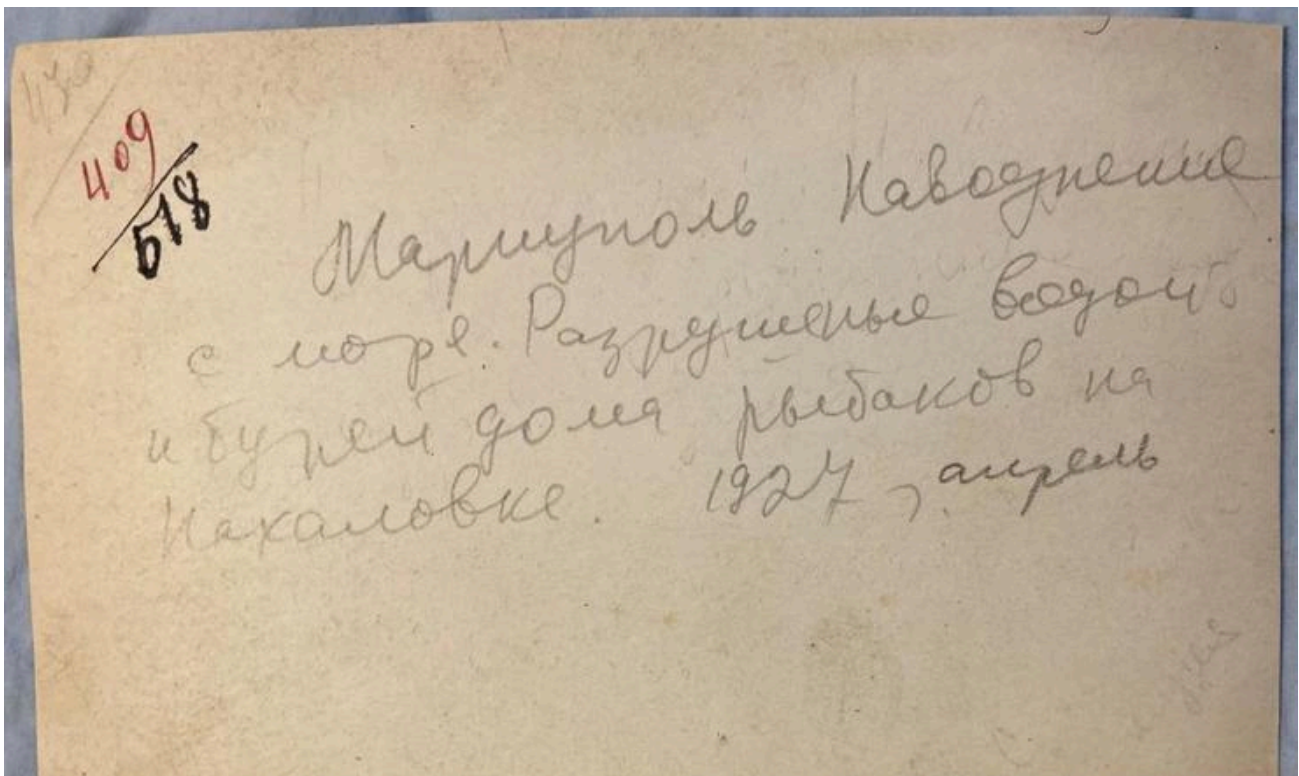 470
409
518
Мариуполь Наводнение
с моря. Разрушеные водой
и бурей дома рыбаков на
Нахаловке. 1927, апрель